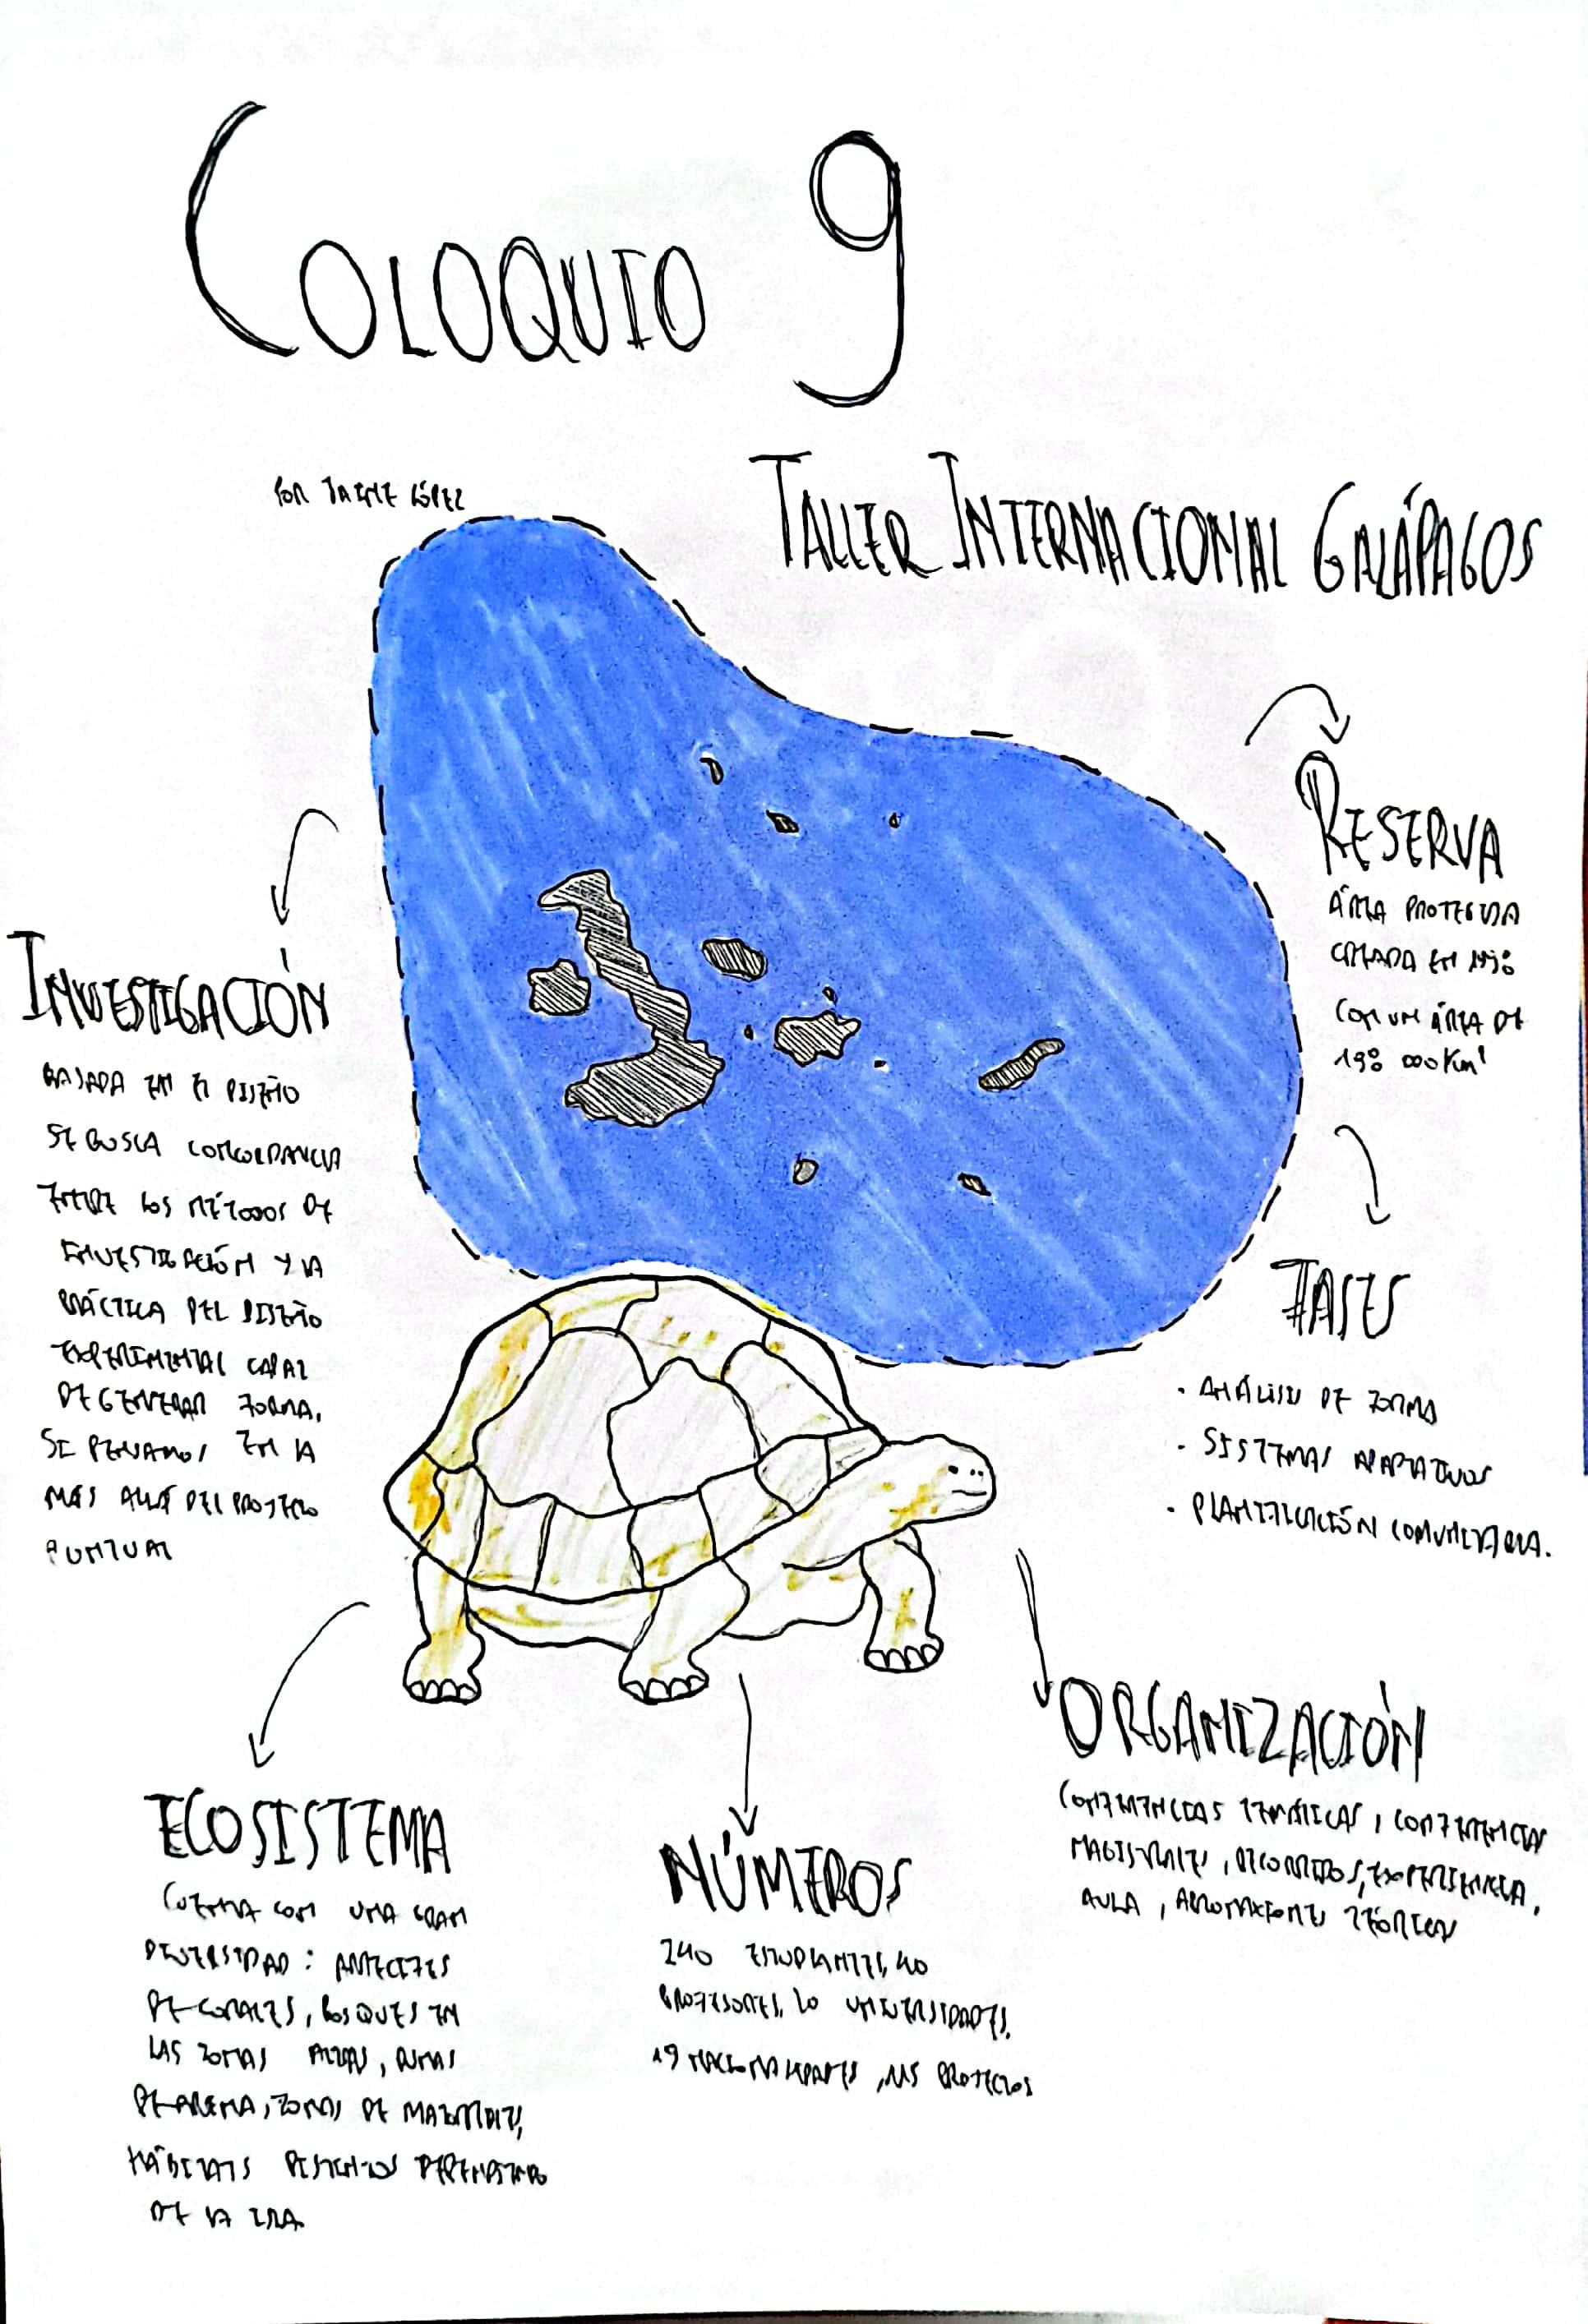 COLOQUIO 9
POR JAIME LÓPEZ
TALLER INTERNACIONAL GALÁPAGOS
RESERVA
ÁREA PROTEGIDA
CREADA EN 1998
CON UN ÁREA DE
198 000 Km²
INVESTIGACIÓN
BASADA EN EL DISEÑO
SE BUSCA CONCORDANCIA
ENTRE LOS MÉTODOS DE
INVESTIGACIÓN Y LA
PRÁCTICA DEL DISEÑO
EXPERIMENTAL CAPAZ
DE GENERAR FORMA.
SE PENSAMOS EN LA
MÁS ALLÁ DEL PROYECTO
PUNTUAL
FASES
· ANÁLISIS DE FORMA
· SISTEMAS ADAPTATIVOS
· PLANIFICACIÓN COMUNITARIA.
ORGANIZACIÓN
CONFERENCIAS TEMÁTICAS, CONFERENCIAS
MAGISTRALES, RECORRIDOS, EXPERIENCIA,
AULA, APROXIMACIONES TEÓRICAS
ECOSISTEMA
CUENTA CON UNA GRAN
DIVERSIDAD: ARRECIFES
DE CORALES, BOSQUES EN
LAS ZONAS ALTAS, DUNAS
DE ARENA, ZONAS DE MATORRALES,
HÁBITATS DISTINTOS DEPENDIENDO
DE LA ISLA.
NÚMEROS
240 ESTUDIANTES, 40
PROFESORES, 20 UNIVERSIDADES,
19 NACIONALIDADES, 115 PROYECTOS